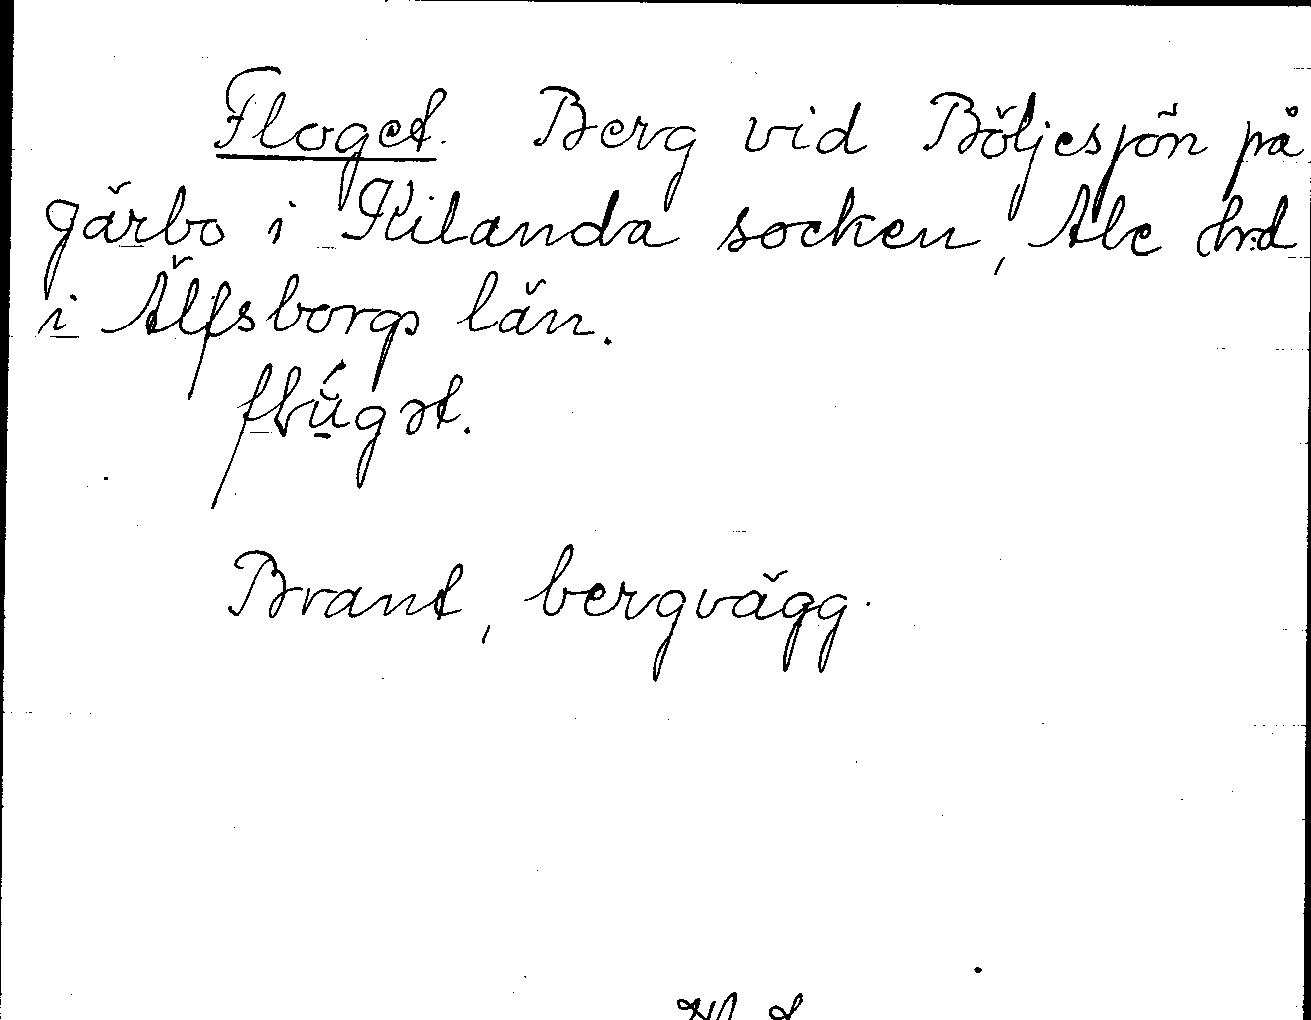 Floget. Berg vid Böljesjön på
gärbo i Kilanda socken, Ale hrd
i Älfsborgs län.
flú̱gət.
Brant, bergvägg.